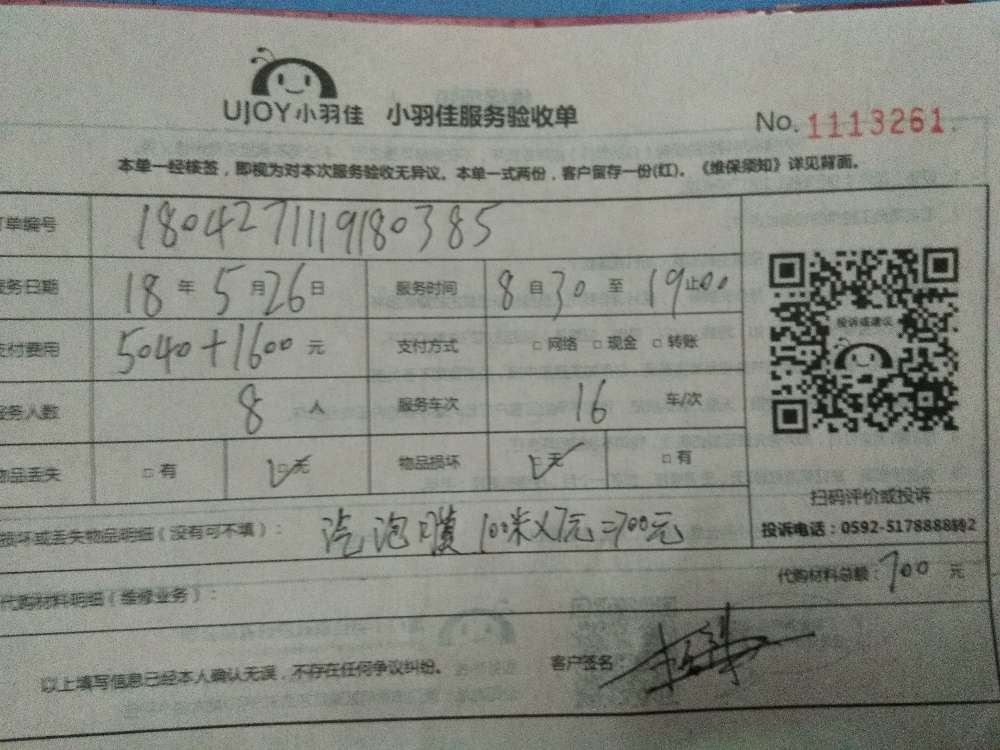 UJOY小羽佳 小羽佳服务验收单
No. 1113261
本单一经核签，即视为对本次服务验收无异议。本单一式两份，客户留存一份(红)。《维保须知》详见背面。
订单编号 1804271119180385
服务日期 18 年 5 月 26 日 服务时间 8 自 30 至 19 止 00
支付费用 5040+1600 元 支付方式 □ 网络 □ 现金 □ 转账
服务人数 8 人 服务车次 16 车/次
物品丢失 □ 有 □ 无 物品损坏 □ 无 □ 有
投诉或建议
扫码评价或投诉
投诉电话：0592-5178888转2
损坏或丢失物品明细（没有可不填）： 汽泡膜 100米X7元=700元
代购材料总额：700 元
代购材料明细（维修业务）：
以上填写信息已经本人确认无误，不存在任何争议纠纷。 客户签名：